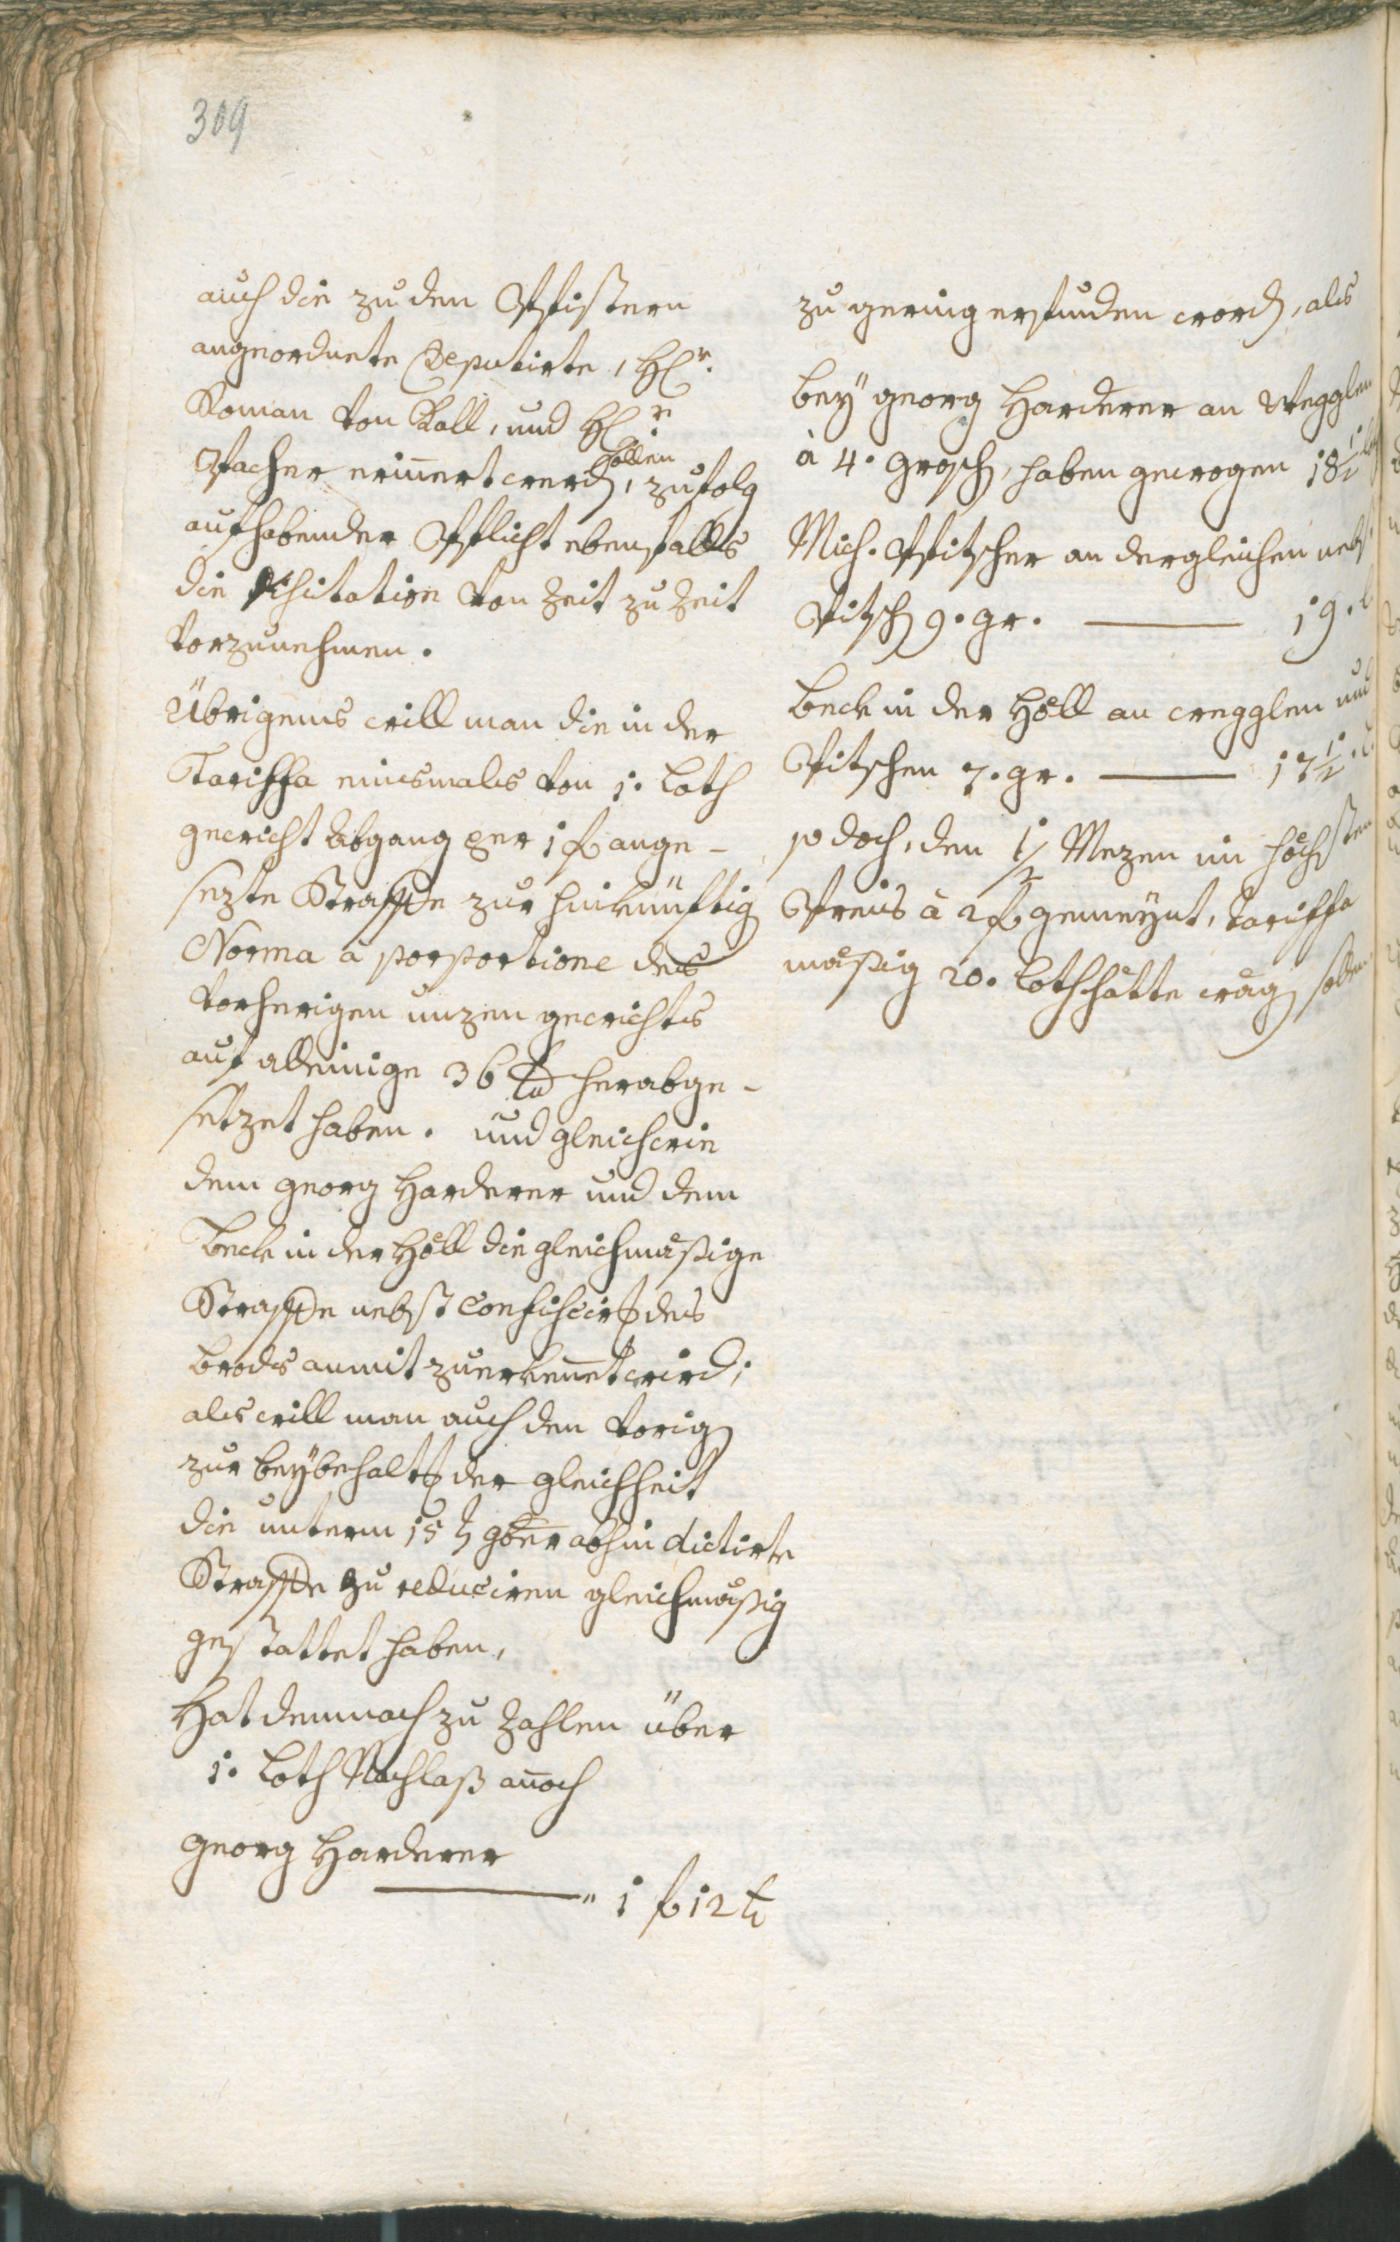 309
auch die zu den Pfistern
angeordnete Deputirte, H[err]
Roman von Call, und H[err]
sollen
Pacher erin̄ert werd[en], zufolg
aufhabender Pflicht ebenfalls
die Visitation von Zeit zu Zeit
vorzunehmen.
Übrigens will man die in der
Tariffa einesmals von 1. Loth
gewicht Abgang per 1 f ange-
sezte Straffe zur hinkünftig
Norma à proportione des
vorherigen unzen gewichts
auf alleinige 36 xr herabge-
setzet haben. und gleichwie
dem Georg Harderer und dem
Beck in der Höll die gleichmäßige
Straffe nebst Confiscir[ung] des
Brods anmit zuerken̄et wird;
als will man auch den vorig[en]
zur beybehalt[ung] der gleichheit
die unterm 15t 9ber abhin dictirte
Straffe zu reduciren gleichmäßig
gestattet haben,
Hat demnach zu zahlen über
1. Loth Nachlaß an̄och
Georg Harderer
1 f 12 xr
zu gering erfunden word[en], als
bey Georg Harderer an Wegglen
à 4. Grosch[en], haben gewogen 18 1/2
Mich. Pfitscher an dergleichen nebst
Pitsch[en] 9. gr. — 19. l
Beck in der Höll an wegglen und
Pitschen 7. gr. — 17 1/2. l
so doch, den 1/2 Mezen im höchsten
Preis à 2 f gemeynt, tariffa
mäßig 20. Loth hätte wäg[en] sollen.